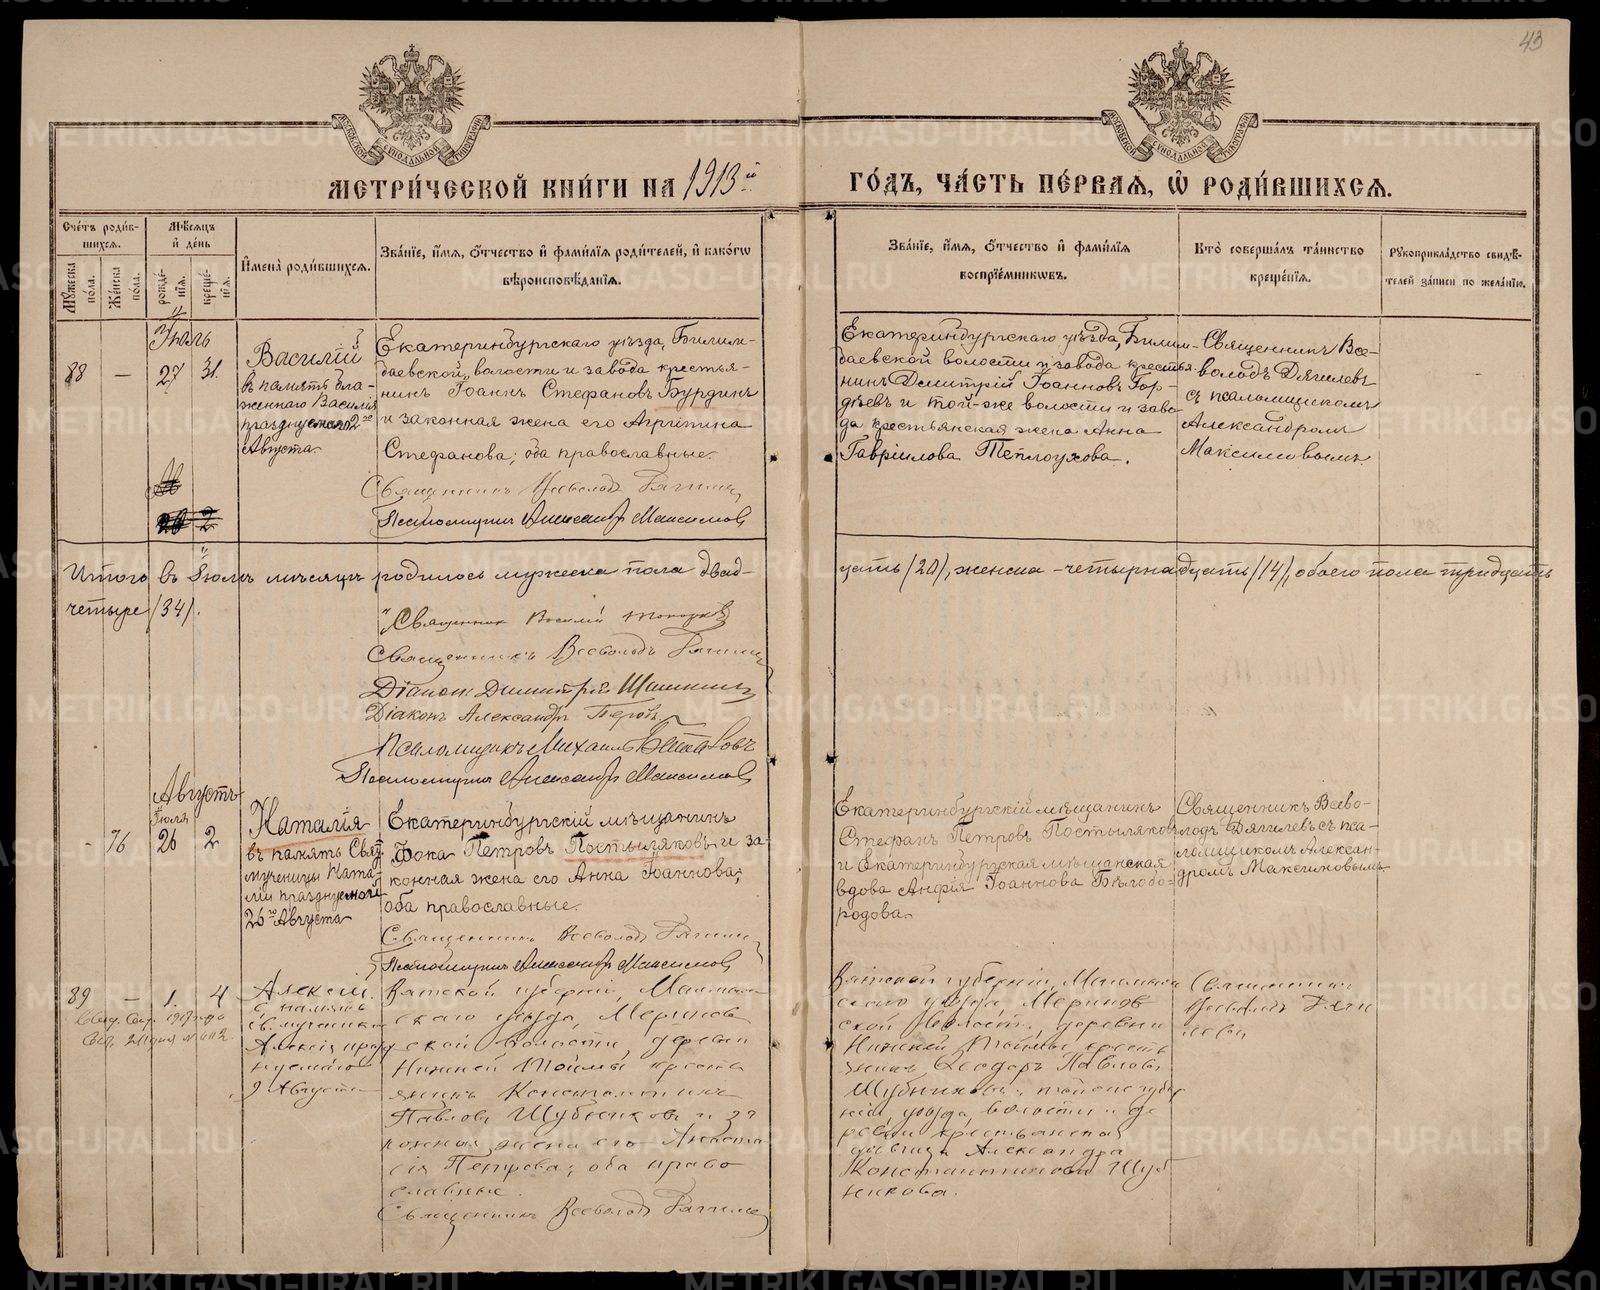 43
МОСКОВСКОЙ СѴНОДАЛЬНОЙ ТИПОГРАФІИ
МОСКОВСКОЙ СѴНОДАЛЬНОЙ ТИПОГРАФІИ
МЕТРИ́ЧЕСКОЙ КНИ́ГИ НА 1913й
ГО́ДЪ, ЧА́СТЬ ПЕ́РВАЯ, Ѡ҆ РОДИ́ВШИХСЯ.
Сче́тъ роди́в-
шихся.
Мужеска по́ла.
Же́нска по́ла.
Мѣ́сяцъ
и҆ де́нь
рожде́-
нїя.
креще́-
нїя.
И҆мена̀ роди́вшихся.
Зва́нїе, и҆́мя, ѻ҆́тчество и҆ фами́лїя роди́телей, и҆ како́гѡ
вѣроисповѣ́данїя.
Зва́нїе, и҆́мя, ѻ҆́тчество и҆ фами́лїя
воспрїе́мникѡвъ.
Кто̀ соверша́лъ та́инство
креще́нїя.
Рꙋкоприкла́дство свидѣ́-
телей за́писи по жела́нїю.
Іюль
88
—
27
31.
Василій
въ память бла-
женнаго Василія
празднуемаго 2го
Августа.
Екатеринбургскаго уѣзда, Билим-
баевской волости и завода крестья-
нинъ Іоаннъ Стефановъ Бурдинъ
и законная жена его Агриппина
Стефанова; оба православные.
Священникъ Всеволодъ Дягилевъ
Псаломщикъ Александръ Максимовъ
Екатеринбургскаго уѣзда, Билим-
баевской волости и завода крестья-
нинъ Димитрій Іоанновъ Гор-
дѣевъ и той-же волости и заво-
да крестьянская жена Анна
Гавріилова Теплоухова.
Священникъ Все-
володъ Дягилевъ
съ псаломщикомъ
Александромъ
Максимовымъ.
Итого въ Іюлѣ мѣсяцѣ родилось мужеска пола двад-
цать (20), женска - четырнадцать (14), обоего пола тридцать
четыре (34).
Священникъ Василій
Священникъ Всеволодъ Дягилевъ
Діаконъ Димитрій
Діаконъ Александръ
Псаломщикъ Михаилъ
Псаломщикъ Александръ Максимовъ
Августъ
Іюля
-
76
26
2
Наталія
въ память Свят.
мученицы Ната-
ліи празднуемой
26го Августа
Екатеринбургскій мѣщанинъ
Фока Петровъ Постыляковъ и за-
конная жена его Анна Іоаннова;
оба православные.
Священникъ Всеволодъ Дягилевъ
Псаломщикъ Александръ Максимовъ
Екатеринбургскій мѣщанинъ
Стефанъ Петровъ Постыляковъ
и Екатеринбургская мѣщанская
вдова Анфія Іоаннова Бѣлобо-
родова.
Священникъ Всево-
лодъ Дягилевъ съ пса-
ломщикомъ Алексан-
дромъ Максимовымъ
89
—
1.
4
Алексій.
въ память
св. мученика
Алексія празд-
нуемаго
9 Августа
Вятской губерніи, Малмыж-
скаго уѣзда, Меринов-
ской волости, деревни
Нижней Тоймы кресть-
янинъ Константинъ
Павловъ Шубниковъ и за-
конная жена его Анаста-
сія Петрова; оба право-
славные.
Священникъ Всеволодъ Дягилевъ
Вятской губерніи, Малмыж-
скаго уѣзда, Меринов-
ской волости, деревни
Нижней Тоймы кресть-
янинъ Ѳеодоръ Павловъ
Шубниковъ; той же губер-
ніи, уѣзда, волости и де-
ревни крестьянская
дѣвица Александра
Константинова Шуб-
никова.
Священникъ
Всеволодъ Дяги-
левъ
METRIKI.GASO-URAL.RU